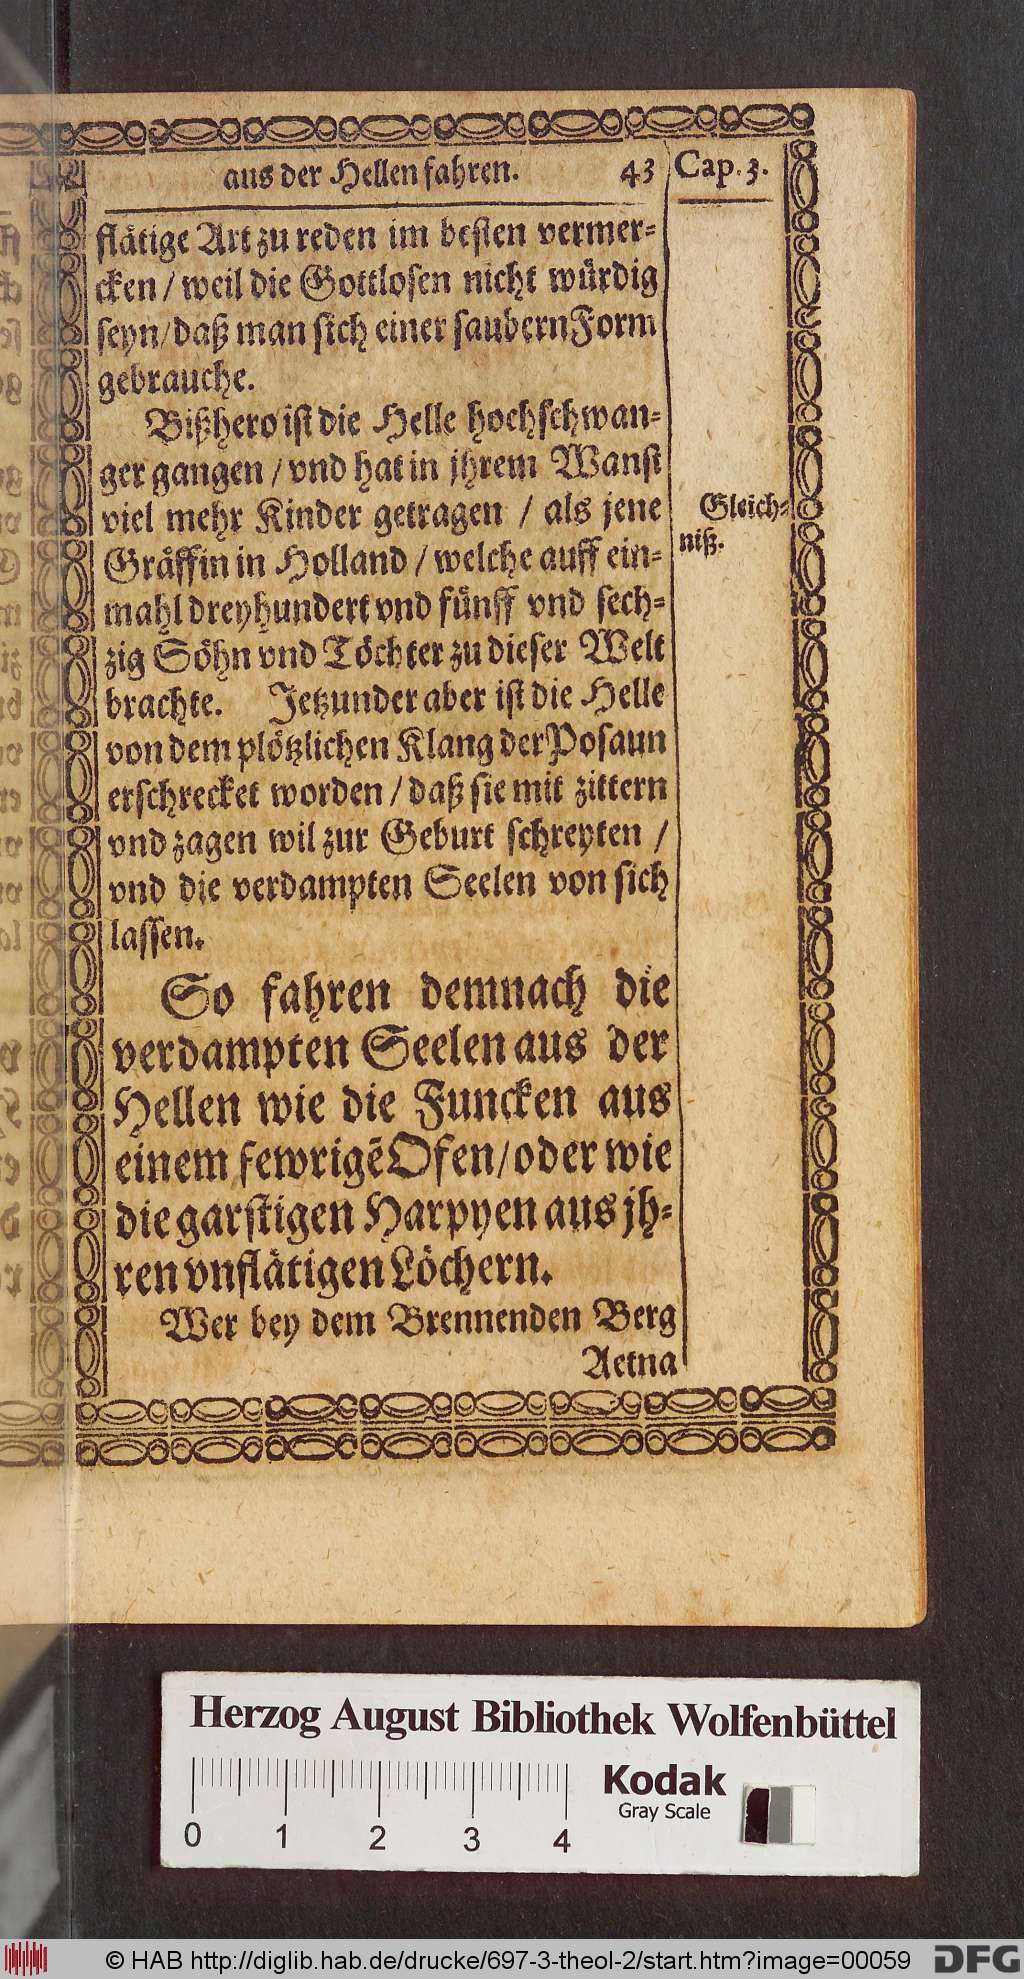 aus der Hellen fahren. 43 Cap. 3.
flätige Art zu reden im besten vermer-
cken / weil die Gottlosen nicht würdig
seyn / daß man sich einer saubern Form
gebrauche.
Bißhero ist die Helle hochschwan-
ger gangen / vnd hat in jhrem Wanst
viel mehr Kinder getragen / als jene
Gleich-
niß.
Gräffin in Holland / welche auff ein-
mahl dreyhundert vnd fünff vnd sech-
zig Söhn vnd Töchter zu dieser Welt
brachte. Jetzunder aber ist die Helle
von dem plötzlichen Klang der Posaun
erschrecket worden / daß sie mit zittern
vnd zagen wil zur Geburt schreyten /
vnd die verdampten Seelen von sich
lassen.
So fahren demnach die
verdampten Seelen aus der
Hellen wie die Funcken aus
einem fewrigẽ Ofen / oder wie
die garstigen Harpyen aus jh-
ren vnflätigen Löchern.
Wer bey dem Brennenden Berg
Aetna
Herzog August Bibliothek Wolfenbüttel
Kodak
Gray Scale
0 1 2 3 4
© HAB http://diglib.hab.de/drucke/697-3-theol-2/start.htm?image=00059
DFG